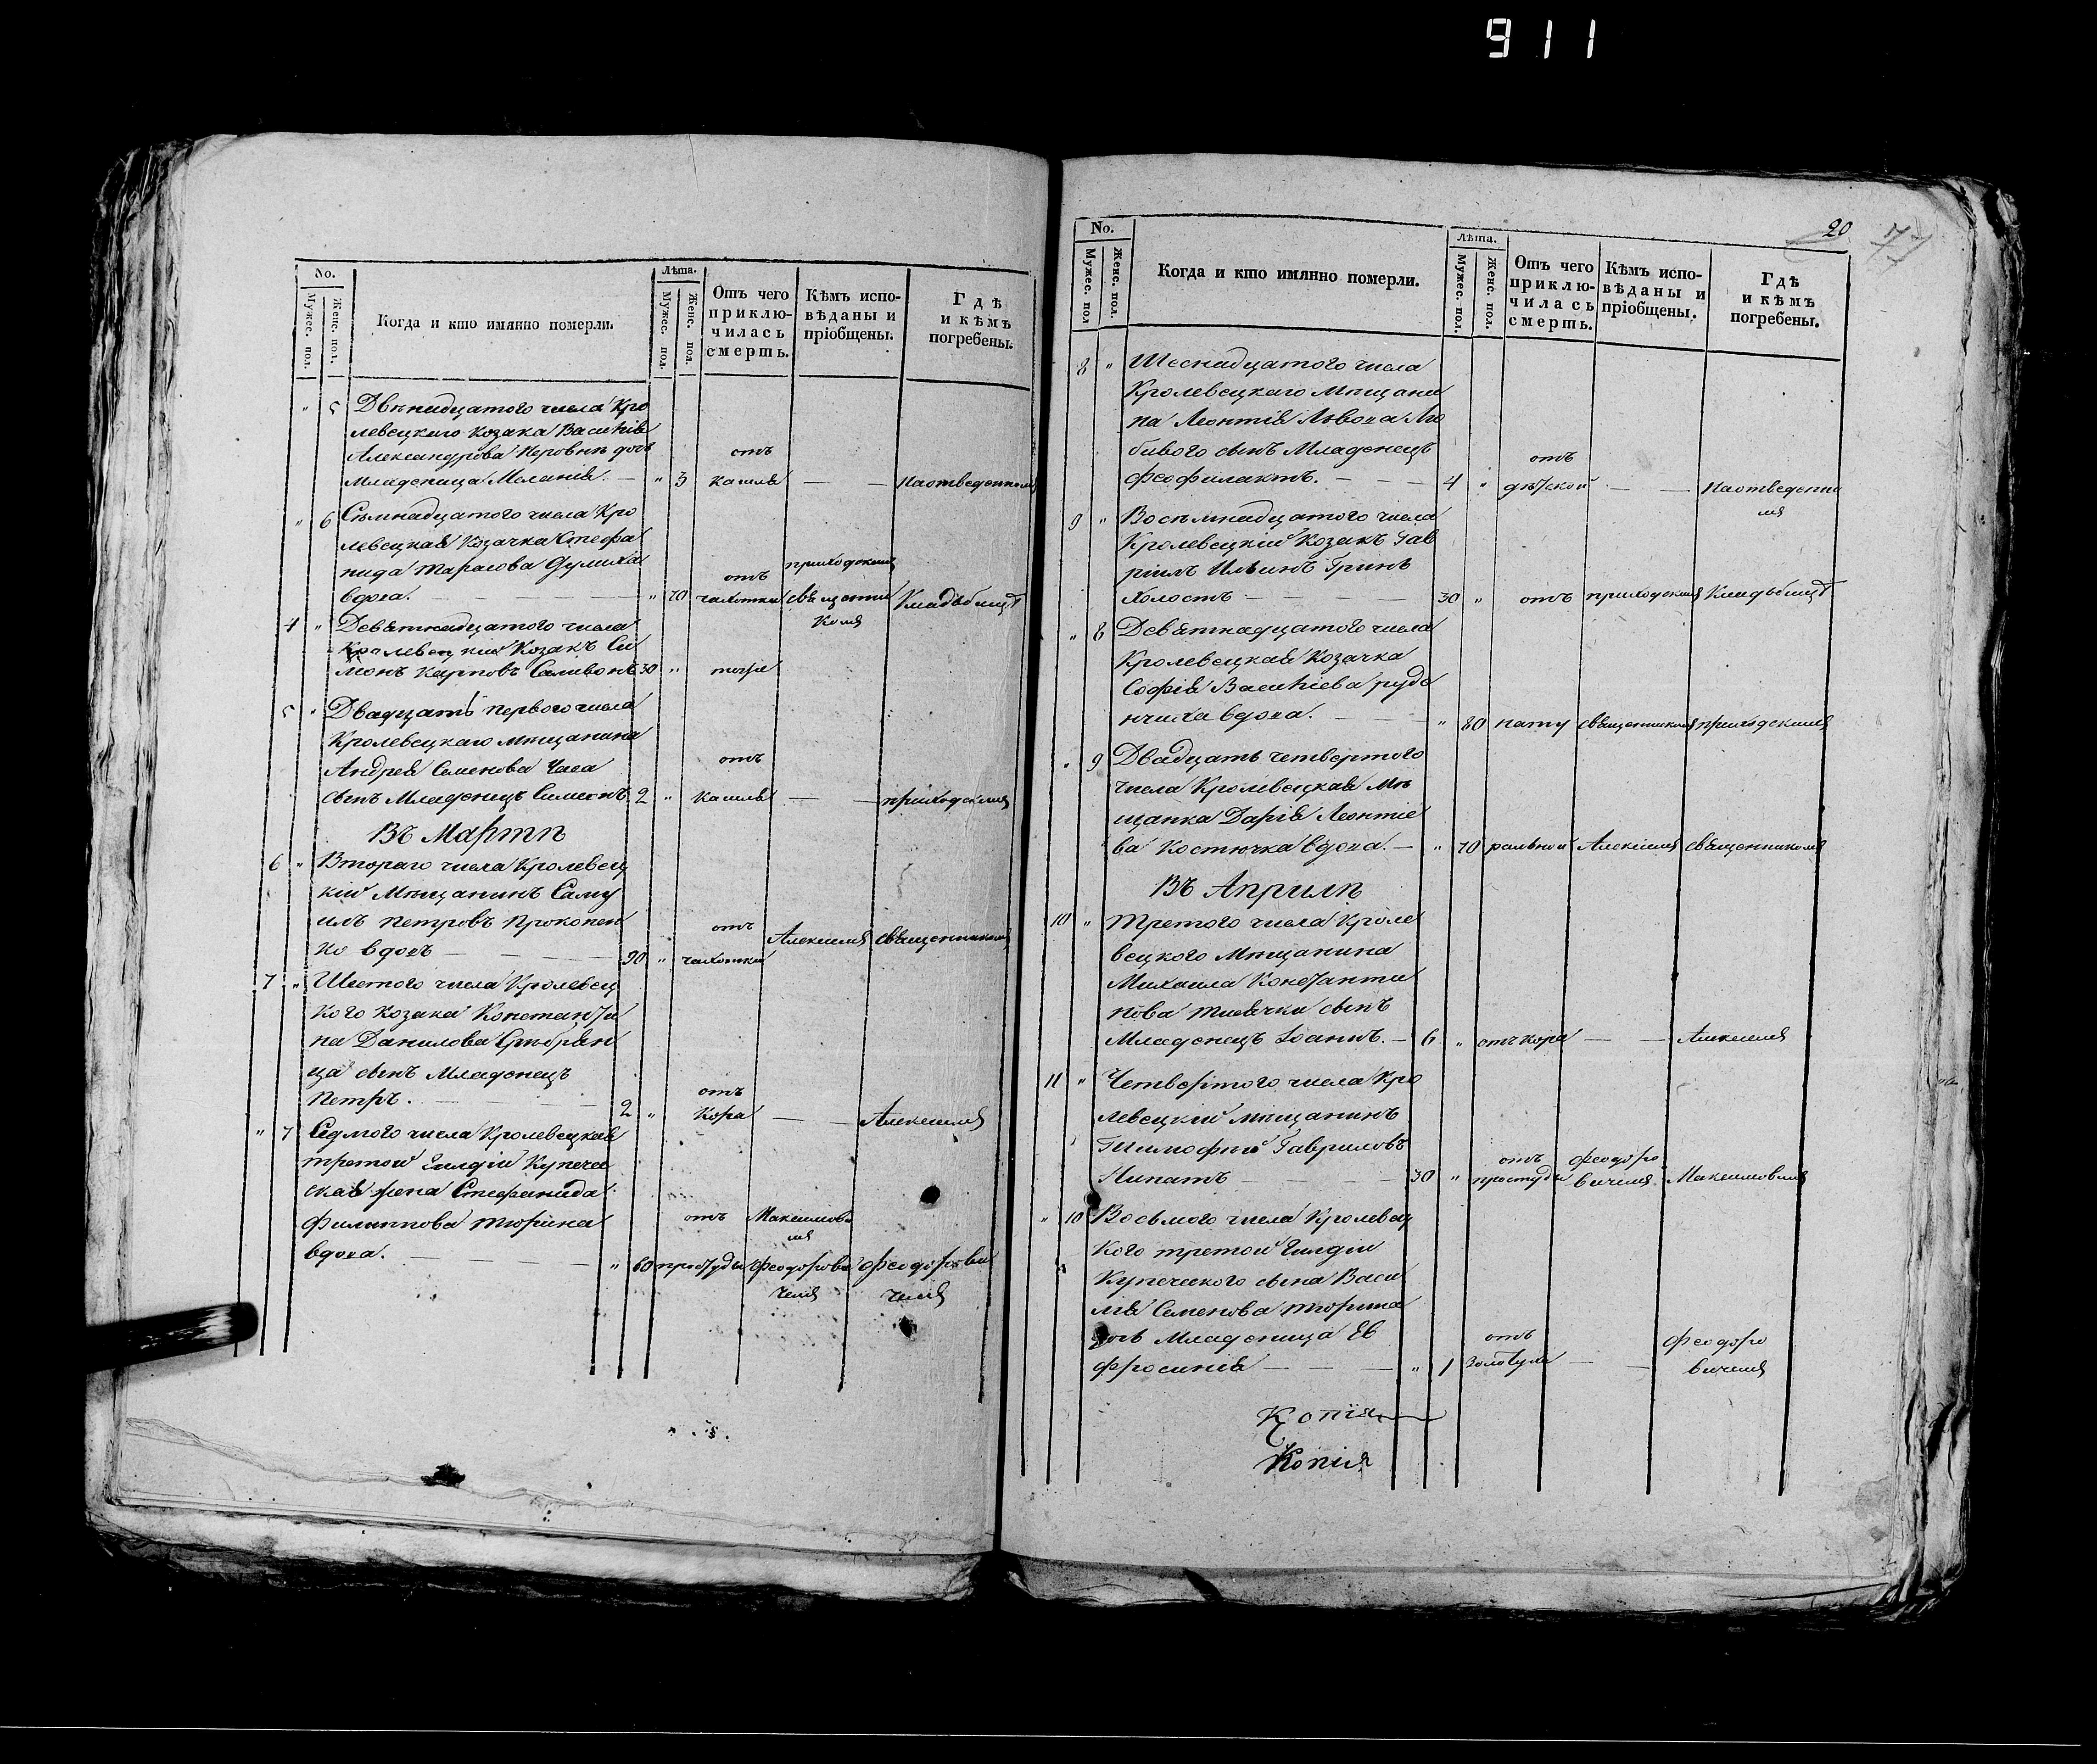 911
No.
Мужес. пол.
Женс. пол.
Когда и кто имянно померли.
Лѣта.
Мужес. пол.
Женс. пол.
Отъ чего
приклю-
чилась
смерть.
Кѣмъ испо-
вѣданы и
пріобщены.
Гдѣ
и кѣмъ
погребены.
" 5 Двѣнадцатого числа Кро
левецкого козака Василія
Александрова дочь
Младеница Меланія. — " 3
отъ
кашля — — На отведенномъ
" 6 Семнадцатого числа Кро
левецкая Козачка Стефа
нида Тарасова
вдова. — " 70
отъ
чахотки
приходскимъ
священни
комъ
Кладбищѣ
4 " Девятнадцатого числа
Кролевецкій Козакъ Си
монъ Карповъ 30 " тожъ
5 " Двадцать первого числа
Кролевецкаго мѣщанина
Андрея Семенова Часа
сынъ Младенецъ Симеонъ 2 "
отъ
кашля — — приходскимъ
Въ Мартѣ
6 " Втораго числа Кролевец
кій Мѣщанинъ Саму
илъ Петровъ Прокопен
ко вдовъ — 90 "
отъ
чахотки Алексіемъ священникомъ
7 " Шестого числа Кролевец
кого козака Константи
на Данилова Сребрян
ца сынъ Младенецъ
Петръ. — 2 "
отъ
Кора — — Алексіемъ
" 7 Седмого числа Кролевецкая
третой Гилдіи Купече
ская жена Стефанида
Филиппова Тюрина
вдова. — " 60
отъ
простуды
Максимовъ
мъ
Феодорови
чемъ
Феодорови
чемъ
20
No.
Мужес. пол
Женс. пол.
Когда и кто имянно померли.
Лѣта.
Мужес. пол.
Женс. пол.
Отъ чего
приклю-
чилась
смерть.
Кѣмъ испо-
вѣданы и
пріобщены.
Гдѣ
и кѣмъ
погребены.
8 " Шеснадцатого числа
Кролевецкаго Мѣщани
на Леонтія Львова Лю
бивого сынъ Младенецъ
Феофилактъ. — 4 "
отъ
дѣтской — — На отведенно
мъ
9 " Восемнадцатого числа
Кролевецкій Козакъ Гав
ріилъ Ильинъ Гринь
Холостъ — 30 " отъ приходскимъ Кладбищѣ
" 8 Девятнадцатого числа
Кролевецкая Козачка
Софія Василіева Руде
нчиха вдова. — " 80 нату священникомъ приходскимъ
" 9 Двадцать четвертого
числа Кролевецкая Мѣ
щанка Дарія Леонтіе
ва Костючка вдова. — " 70 ральной Алексіемъ священникомъ
Въ Априлѣ
10 " Третого числа Кроле
вецкого Мѣщанина
Михаила Константи
нова сынъ
Младенецъ Іоаннъ. — 6 " отъ кора — — Алексіемъ
11 " Четвертого числа Кро
левецкій мѣщанинъ
Тимофѣй Гавриловъ
Липатъ — 30 "
отъ
простуды
Феодоро
вичемъ Максимовымъ
" 10 Восьмого числа Кролевец
кого третой Гилдіи
Купеческого сына Васи
лія Семенова Тюрина
дочь Младеница Ев
фросинія — " 1
отъ
Золотухи — —
Феодоро
вичемъ
Копія
Копія